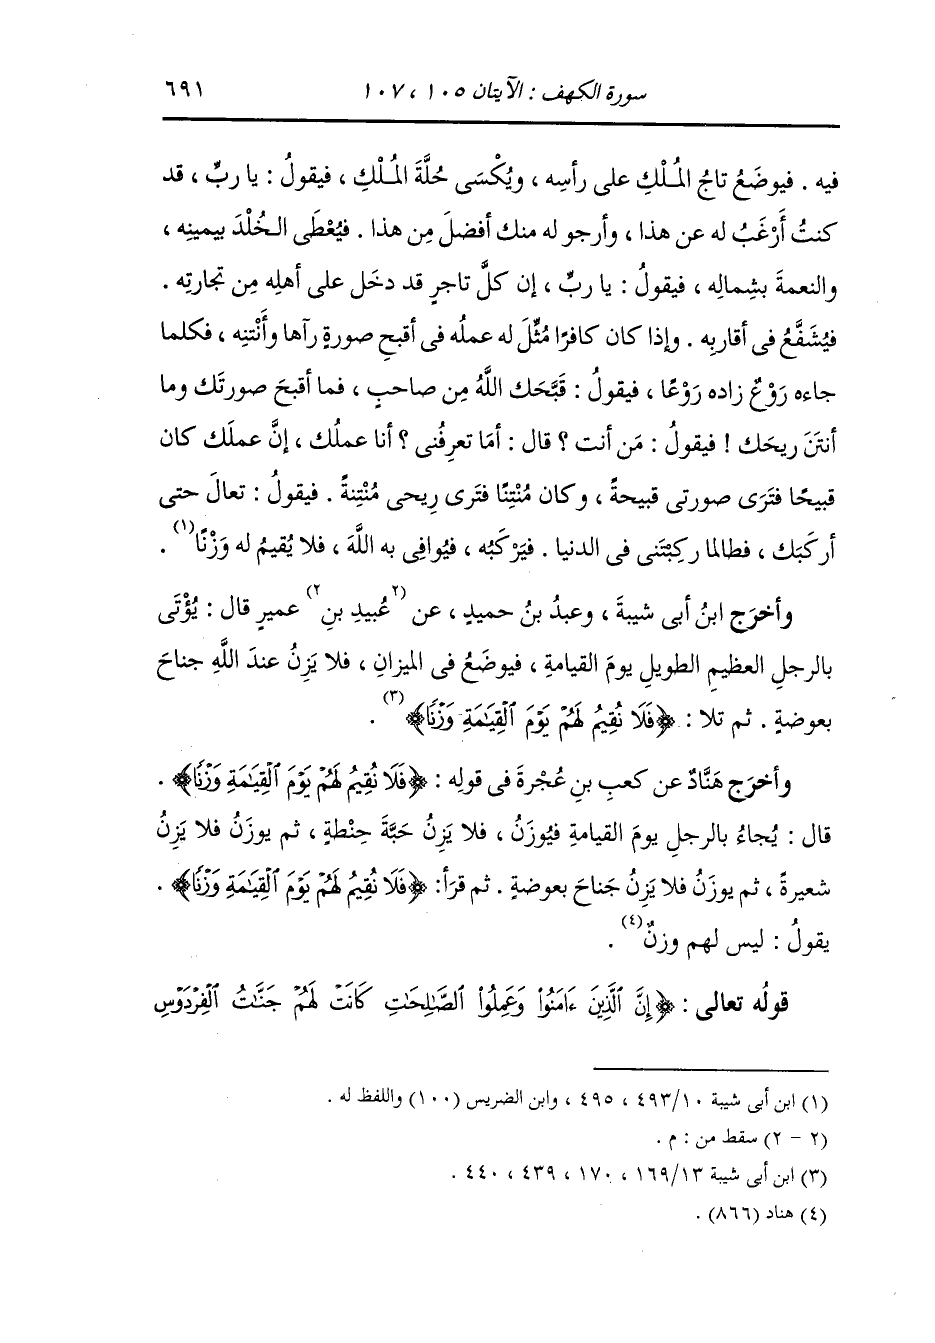 سورة الكهف : الآيتان ١٠٥ ، ١٠٧ ٦٩١
فيه . فيوضَعُ تاجُ المُلْكِ على رأسِه ، ويُكْسَى حُلَّةَ المُلْكِ ، فيقولُ : يا ربِّ ، قد
كنتُ أَرْغَبُ له عن هذا ، وأرجو له منك أفضلَ مِن هذا . فيُعْطَى الخُلْدَ بيمينِه ،
والنعمةَ بشِمالِه ، فيقولُ : يا ربِّ ، إن كلَّ تاجرٍ قد دخَل على أهلِه مِن تجارتِه .
فيُشَفَّعُ فى أقاربِه . وإذا كان كافرًا مُثِّلَ له عملُه فى أقبحِ صورةٍ رآها وأَنْتنِه ، فكلما
جاءه رَوْعٌ زاده رَوْعًا ، فيقولُ : قَبَّحَك اللَّهُ مِن صاحبٍ ، فما أقبحَ صورتَك وما
أنتَنَ ريحَك ! فيقولُ : مَن أنت ؟ قال : أمَا تعرِفُنى ؟ أنا عملُك ، إنَّ عملَك كان
قبيحًا فتَرَى صورتى قبيحةً ، وكان مُنْتِنًا فتَرى رِيحى مُنْتِنةً . فيقولُ : تعالَ حتى
أركَبَك ، فطالما ركِبْتَنى فى الدنيا . فيَرْكَبُه ، فيُوافِى به اللَّهَ ، فلا يُقيمُ له وَزْنًا(١) .
وأخرَج ابنُ أبى شيبةَ ، وعبدُ بنُ حميدٍ ، عن (٢عُبيدِ بنِ٢) عميرٍ قال : يُؤْتَى
بالرجلِ العظيمِ الطويلِ يومَ القيامةِ ، فيوضَعُ فى الميزانِ ، فلا يَزِنُ عندَ اللَّهِ جناحَ
بعوضةٍ . ثم تلا : ﴿فَلَا نُقِيمُ لَهُمْ يَوْمَ ٱلْقِيَـٰمَةِ وَزْنًا﴾(٣) .
وأخرَج هَنَّادٌ عن كعبِ بنِ عُجْرةَ فى قولِه : ﴿فَلَا نُقِيمُ لَهُمْ يَوْمَ ٱلْقِيَـٰمَةِ وَزْنًا﴾ .
قال : يُجاءُ بالرجلِ يومَ القيامةِ فيُوزَنُ ، فلا يَزِنُ حَبَّةَ حِنْطةٍ ، ثم يوزَنُ فلا يَزِنُ
شعيرةً ، ثم يوزَنُ فلا يَزِنُ جَناحَ بعوضةٍ . ثم قرَأ : ﴿فَلَا نُقِيمُ لَهُمْ يَوْمَ ٱلْقِيَـٰمَةِ وَزْنًا﴾ .
يقولُ : ليس لهم وزنٌ(٤) .
قولُه تعالى : ﴿إِنَّ ٱلَّذِينَ ءَامَنُوا۟ وَعَمِلُوا۟ ٱلصَّـٰلِحَـٰتِ كَانَتْ لَهُمْ جَنَّـٰتُ ٱلْفِرْدَوْسِ
(١) ابن أبى شيبة ١٠/٤٩٣ ، ٤٩٥ ، وابن الضريس (١٠٠) واللفظ له .
(٢ - ٢) سقط من : م .
(٣) ابن أبى شيبة ١٣/١٦٩ ، ١٧٠ ، ٤٣٩ ، ٤٤٠ .
(٤) هناد (٨٦٦) .